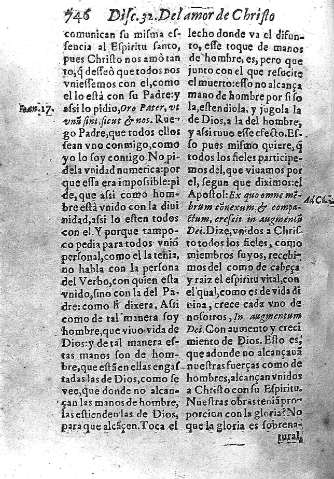 746 Disc. 32. Del amor de Christo
comunican su misma es-
sencia al Espiritu santo,
pues Christo nos amò tan
to, q̃ desseò que todos nos
vniessemos con el, como
el lo està con su Padre: y
assi lo pidio, Oro Pater, vt
Ioan. 17.
vnũ sint, sicut & nos. Rue-
go Padre, que todos ellos
sean vno conmigo, como
yo lo soy contigo. No pi-
de la vnidad numerica: por
que essa era impossible: pi-
de, que assi como hom-
bre està vnido con la diui
nidad, assi lo esten todos
con el. Y porque tampo-
co pedia para todos vniõ
personal, como el la tenia,
no habla con la persona
del Verbo, con quien esta
vnido, sino con la del Pa-
dre: como si dixera. Assi
como de tal manera soy
hombre, que viuo vida de
Dios: y de tal manera es-
tas manos son de hom-
bre, que estàn en ellas engas
tadas las de Dios, como se
ve, que donde no alcan-
çan las manos de hombre,
las estienden las de Dios,
para que alcãçen. Toca el
lecho donde va el difun-
to, esse toque de manos
de hombre, es, pero que
junto con el que resucite
el muerto: esso no alcança
mano de hombre por si so
la, estendiola, y jugola la
de Dios, a la del hombre,
y assi tuuo esse efecto. Es-
so pues mismo quiere, q̃
todos los fieles participe-
mos del, que viuamos por
el, segun que diximos: el
Apostol: Ex quo omne mẽ-
brum connexum & compa-
ctum, crescit in augmentũ
Dei. Dize, vnidos a Chris-
to todos los fieles, como
miembros suyos, recibi-
mos del como de cabeça
y raiz el espiritu vital, con
el qual, como es de vida di
uina, crece cada vno de
nosotros, In augmentum
Dei. Con aumento y creci
miento de Dios. Esto es,
que adonde no alcançauã
nuestras fuerças como de
hombres, alcançan vnidos
a Christo con su Espiritu.
Nuestras obras tenia pro-
porcion con la gloria? No
que la gloria es sobrena-
tural,